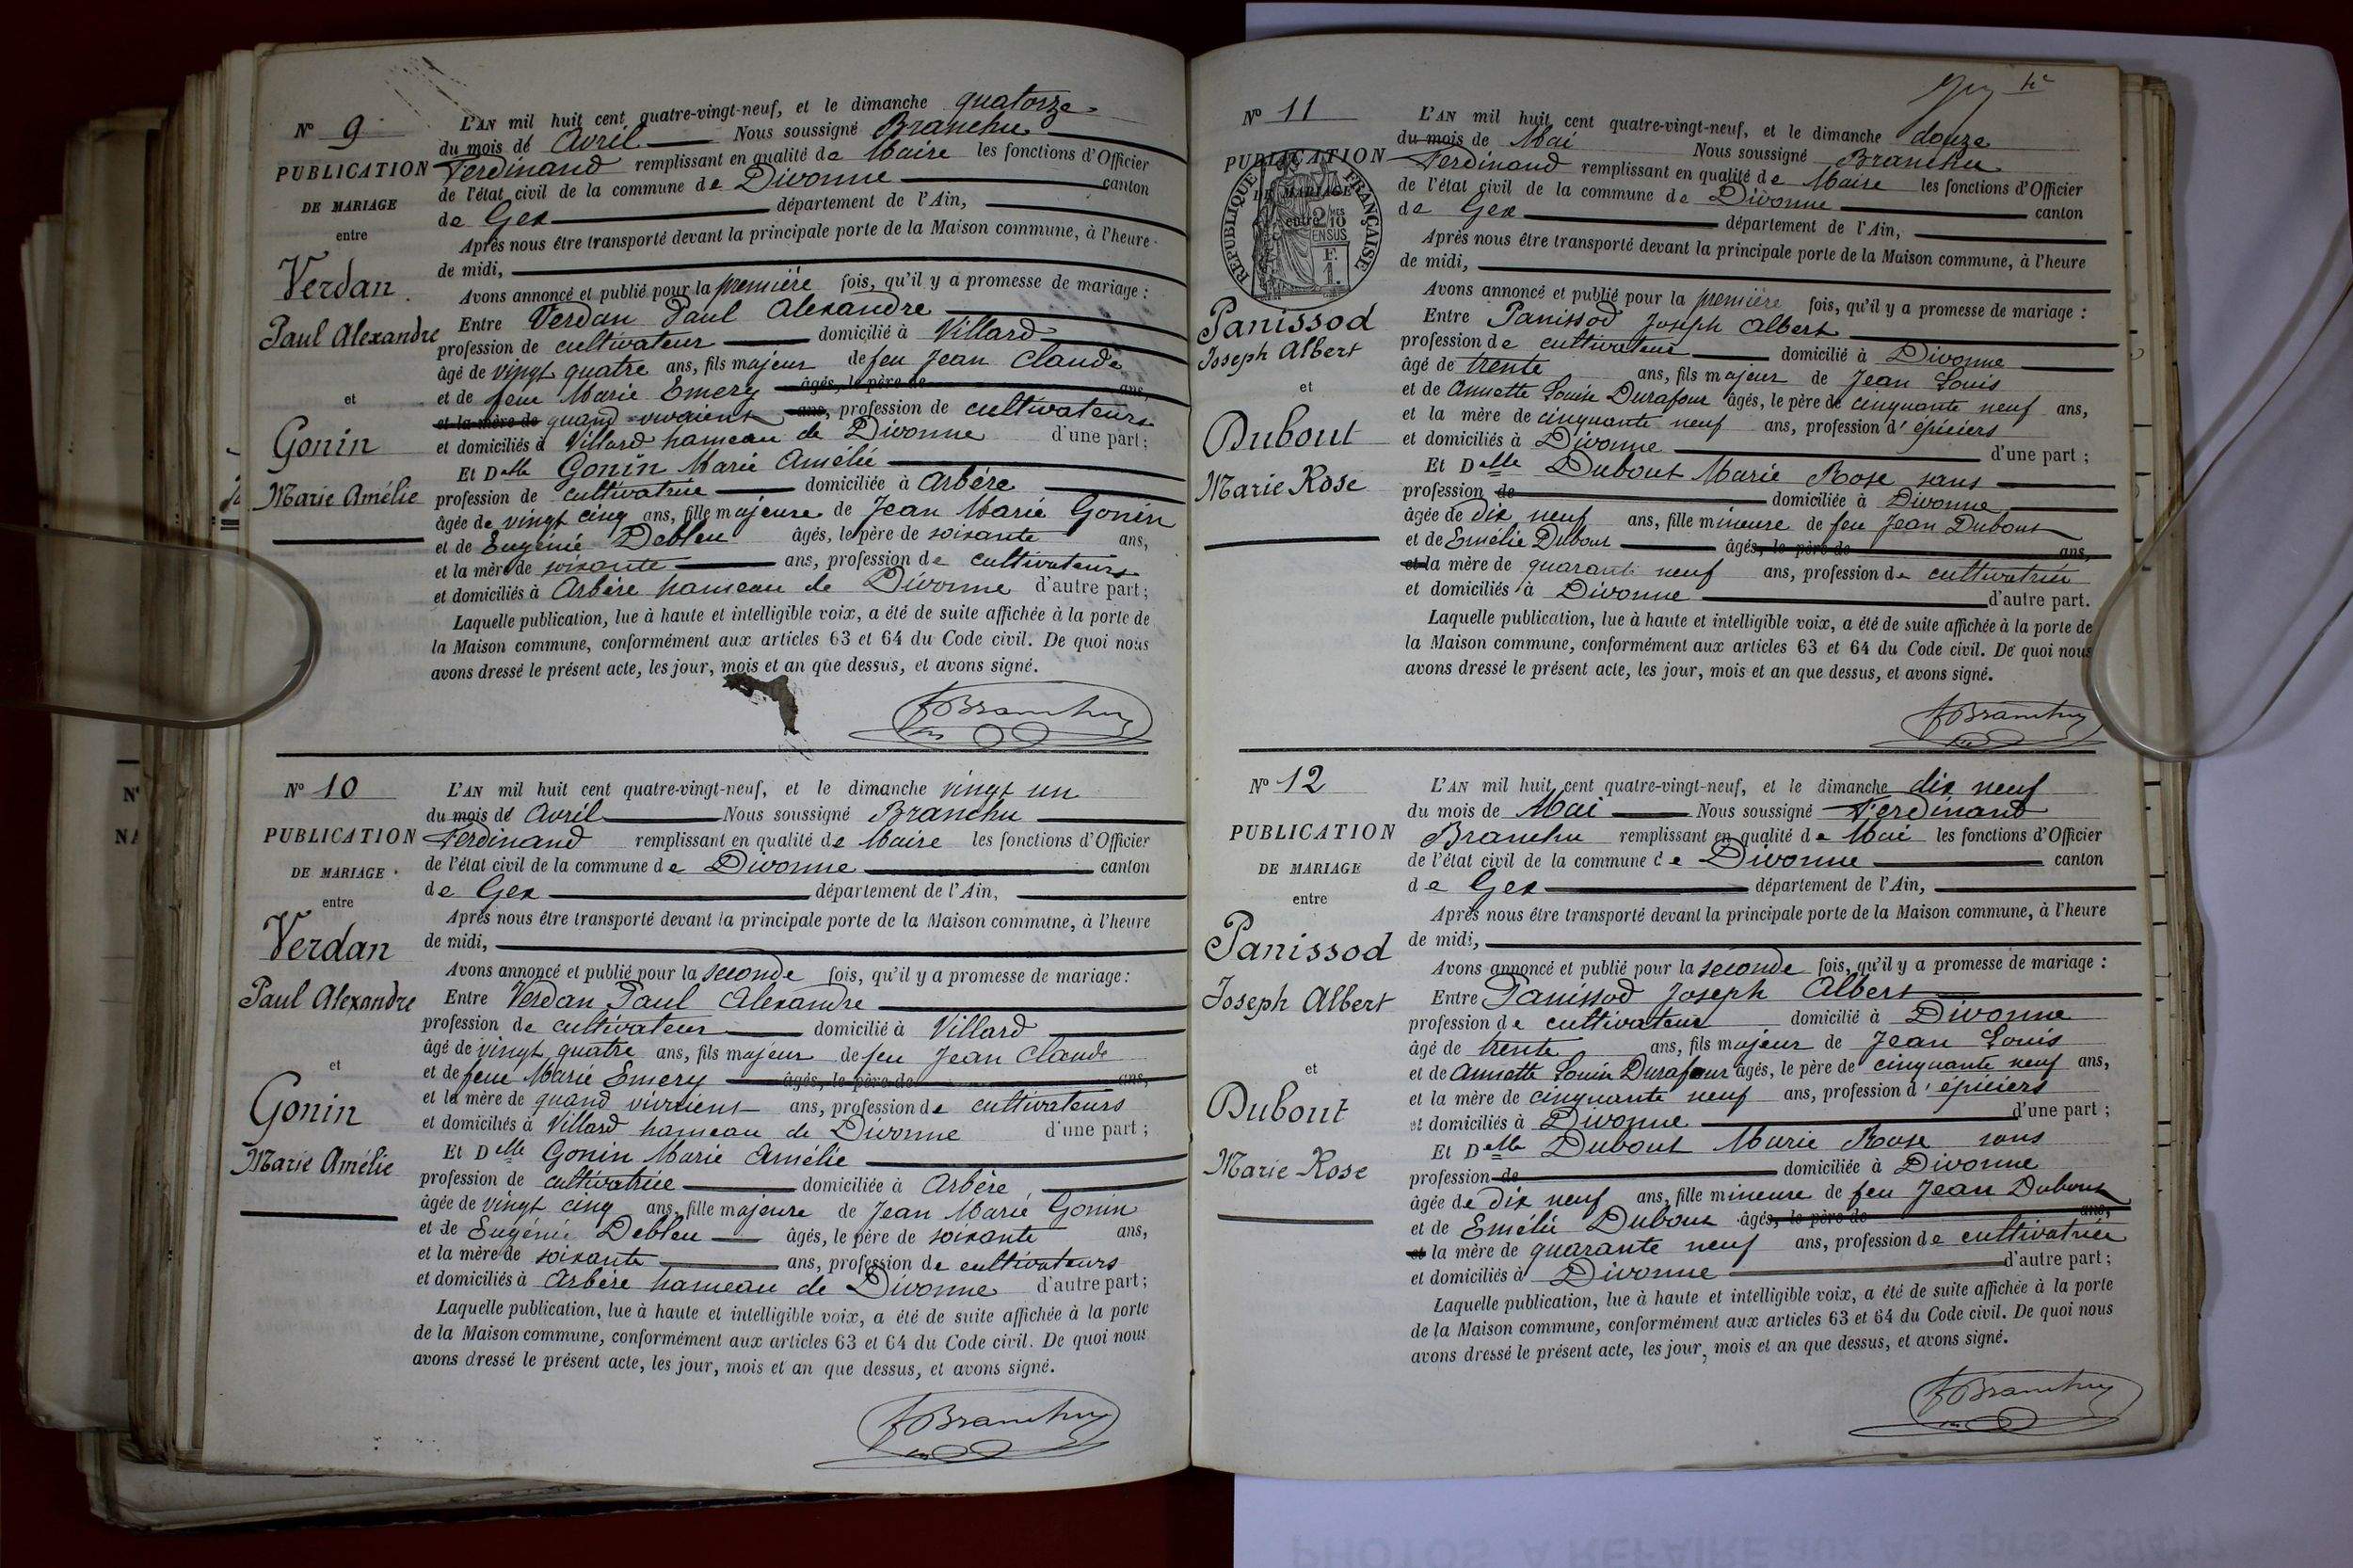 N° 9
PUBLICATION
DE MARIAGE
entre
Verdan
Paul Alexandre
et
Gonin
Marie Amélie
L'AN mil huit cent quatre-vingt-neuf, et le dimanche quatorze
du mois de Avril Nous soussigné Branchu
Ferdinand remplissant en qualité de Maire les fonctions d'Officier
de l'état civil de la commune de Divonne canton
de Gex département de l'Ain,
Après nous être transporté devant la principale porte de la Maison commune, à l'heure
de midi,
Avons annoncé et publié pour la première fois, qu'il y a promesse de mariage :
Entre Verdan Paul Alexandre
profession de cultivateur domicilié à Villard
âgé de vingt quatre ans, fils majeur de feu Jean Claude
et de feue Marie Emery âgés, le père de ans,
et la mère de quand vivaient ans, profession de cultivateurs
et domiciliés à Villard hameau de Divonne d'une part ;
Et Delle Gonin Marie Amélie
profession de cultivatrice domiciliée à Arbère
âgée de vingt cinq ans, fille majeure de Jean Marie Gonin
et de Eugénie Debleu âgés, le père de soixante ans,
et la mère de soixante ans, profession de cultivateurs
et domiciliés à Arbère hameau de Divonne d'autre part ;
Laquelle publication, lue à haute et intelligible voix, a été de suite affichée à la porte de
la Maison commune, conformément aux articles 63 et 64 du Code civil. De quoi nous
avons dressé le présent acte, les jour, mois et an que dessus, et avons signé.
FBranchu
N° 10
PUBLICATION
DE MARIAGE
entre
Verdan
Paul Alexandre
et
Gonin
Marie Amélie
L'AN mil huit cent quatre-vingt-neuf, et le dimanche vingt un
du mois de Avril Nous soussigné Branchu
Ferdinand remplissant en qualité de Maire les fonctions d'Officier
de l'état civil de la commune de Divonne canton
de Gex département de l'Ain,
Après nous être transporté devant la principale porte de la Maison commune, à l'heure
de midi,
Avons annoncé et publié pour la seconde fois, qu'il y a promesse de mariage :
Entre Verdan Paul Alexandre
profession de cultivateur domicilié à Villard
âgé de vingt quatre ans, fils majeur de feu Jean Claude
et de feue Marie Emery âgés, le père de ans,
et la mère de quand vivaient ans, profession de cultivateurs
et domiciliés à Villard hameau de Divonne d'une part ;
Et Delle Gonin Marie Amélie
profession de cultivatrice domiciliée à Arbère
âgée de vingt cinq ans, fille majeure de Jean Marie Gonin
et de Eugénie Debleu âgés, le père de soixante ans,
et la mère de soixante ans, profession de cultivateurs
et domiciliés à Arbère hameau de Divonne d'autre part ;
Laquelle publication, lue à haute et intelligible voix, a été de suite affichée à la porte
de la Maison commune, conformément aux articles 63 et 64 du Code civil. De quoi nous
avons dressé le présent acte, les jour, mois et an que dessus, et avons signé.
FBranchu
N° 11
PUBLICATION
DE MARIAGE
entre
RÉPUBLIQUE FRANÇAISE
2/10
EN SUS
F.
1.
Panissod
Joseph Albert
et
Dubout
Marie Rose
L'AN mil huit cent quatre-vingt-neuf, et le dimanche douze
du mois de Mai Nous soussigné Branchu
Ferdinand remplissant en qualité de Maire les fonctions d'Officier
de l'état civil de la commune de Divonne canton
de Gex département de l'Ain,
Après nous être transporté devant la principale porte de la Maison commune, à l'heure
de midi,
Avons annoncé et publié pour la première fois, qu'il y a promesse de mariage :
Entre Panissod Joseph Albert
profession de cultivateur domicilié à Divonne
âgé de trente ans, fils majeur de Jean Louis
et de Annette Louise Durafour âgés, le père de cinquante neuf ans,
et la mère de cinquante neuf ans, profession d'épiciers
et domiciliés à Divonne d'une part ;
Et Delle Dubout Marie Rose sans
profession de domiciliée à Divonne
âgée de dix neuf ans, fille mineure de feu Jean Dubout
et de Emélie Dubout âgés, le père de ans,
et la mère de quarante neuf ans, profession de cultivatrice
et domiciliés à Divonne d'autre part.
Laquelle publication, lue à haute et intelligible voix, a été de suite affichée à la porte de
la Maison commune, conformément aux articles 63 et 64 du Code civil. De quoi nous
avons dressé le présent acte, les jour, mois et an que dessus, et avons signé.
FBranchu
N° 12
PUBLICATION
DE MARIAGE
entre
Panissod
Joseph Albert
et
Dubout
Marie Rose
L'AN mil huit cent quatre-vingt-neuf, et le dimanche dix neuf
du mois de Mai Nous soussigné Ferdinand
Branchu remplissant en qualité de Mai les fonctions d'Officier
de l'état civil de la commune de Divonne canton
de Gex département de l'Ain,
Après nous être transporté devant la principale porte de la Maison commune, à l'heure
de midi,
Avons annoncé et publié pour la seconde fois, qu'il y a promesse de mariage :
Entre Panissod Joseph Albert
profession de cultivateur domicilié à Divonne
âgé de trente ans, fils majeur de Jean Louis
et de Annette Louise Durafour âgés, le père de cinquante neuf ans,
et la mère de cinquante neuf ans, profession d'épiciers
et domiciliés à Divonne d'une part ;
Et Delle Dubout Marie Rose sans
profession de domiciliée à Divonne
âgée de dix neuf ans, fille mineure de feu Jean Dubout
et de Emélie Dubout âgés, le père de ans,
et la mère de quarante neuf ans, profession de cultivatrice
et domiciliés à Divonne d'autre part ;
Laquelle publication, lue à haute et intelligible voix, a été de suite affichée à la porte
de la Maison commune, conformément aux articles 63 et 64 du Code civil. De quoi nous
avons dressé le présent acte, les jour, mois et an que dessus, et avons signé.
FBranchu